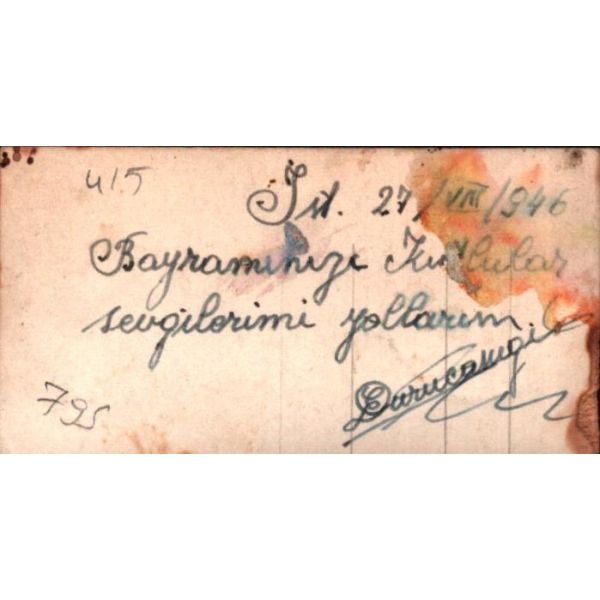 415
İst. 27/VIII/946
Bayramınızı Kutlular
sevgilerimi yollarım
795